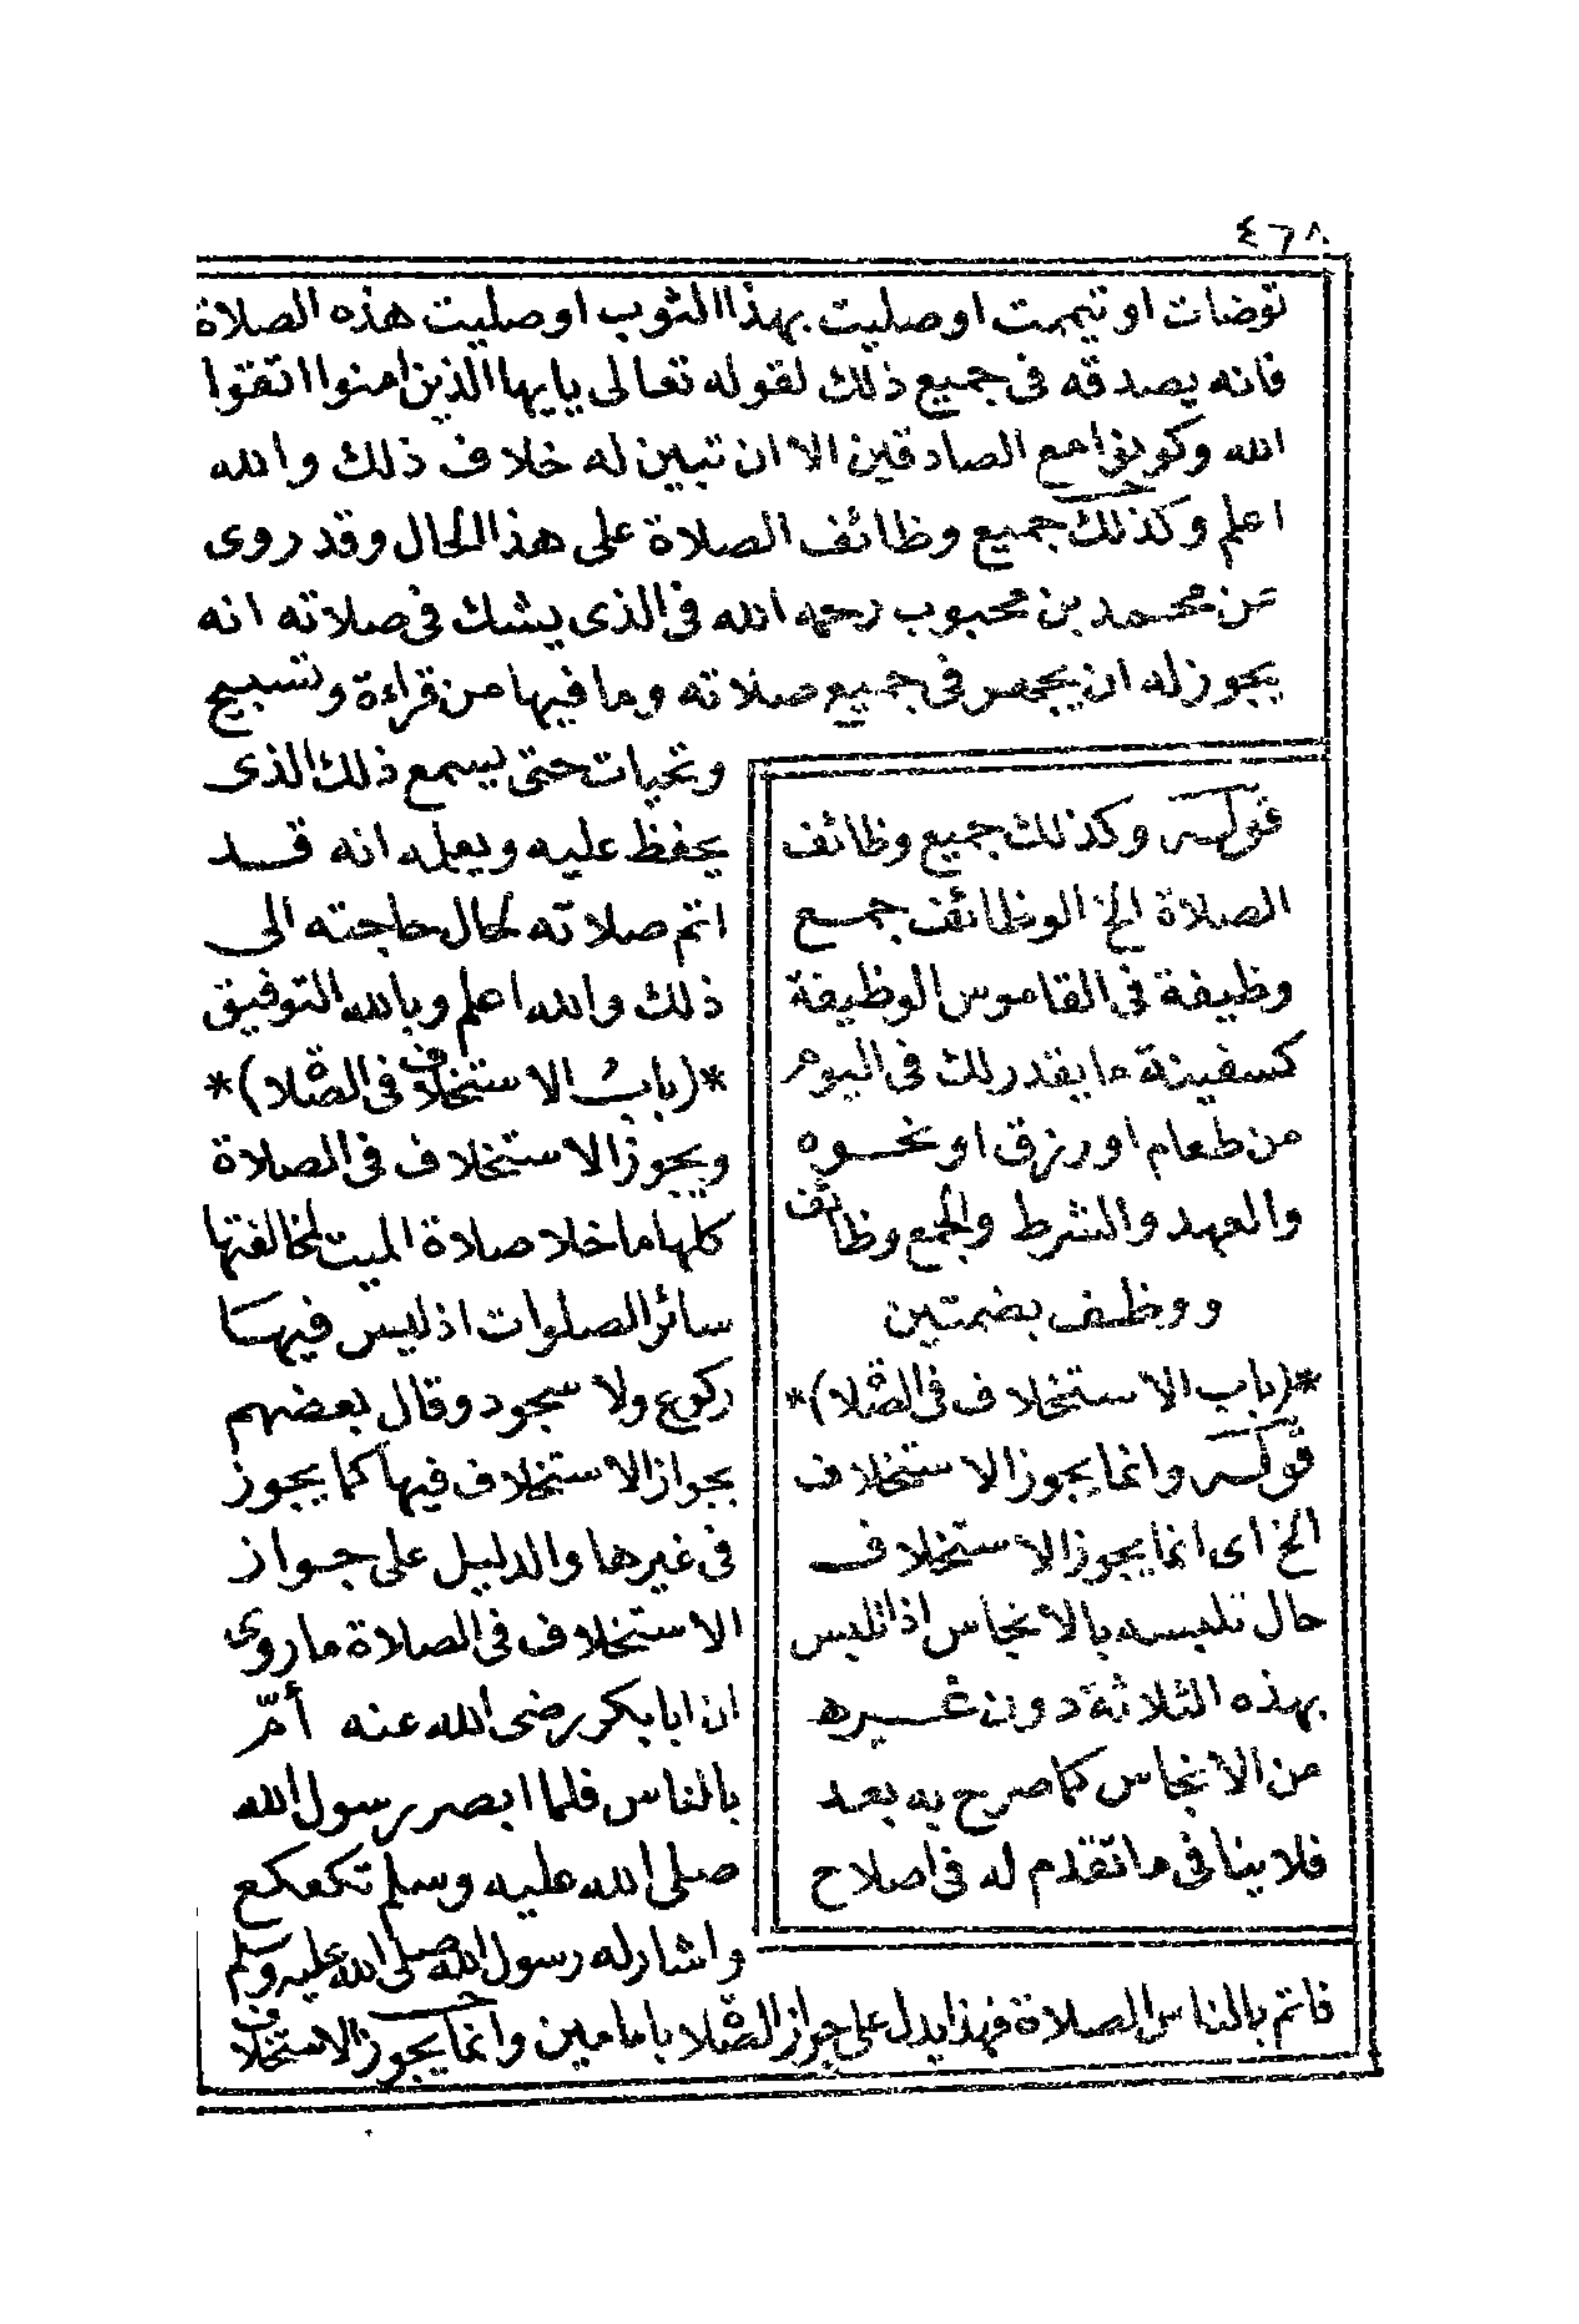 ٤٦٨
توضات او تيممت او صليت بهذا الثوب او صليت هذه الصلاة
فانه يصدقه فى جميع ذلك لقوله تعالى يايها الذين امنوا اتقوا
الله وكونوا مع الصادقين الا ان تبين له خلاف ذلك والله
اعلم وكذلك جميع وظائف الصلاة على هذا الحال وقد روى
عن محمد بن محبوب رحمه الله فى الذى يشك فى صلاته انه
يجوز له ان يجهر فى جميع صلاته وما فيها من قراءة وتسبيح
وتحيات حتى يسمع ذلك الذى
يحفظ عليه ويعلمه انه قد
اتم صلاته لحال حاجته الى
ذلك والله اعلم وبالله التوفيق
*(باب الاستخلاف فى الصلاة)*
ويجوز الاستخلاف فى الصلاة
كلها ما خلا صلاة الميت لمخالفتها
سائر الصلوات اذ ليس فيها
ركوع ولا سجود وقال بعضهم
بجواز الاستخلاف فيها كما يجوز
فى غيرها والدليل على جواز
الاستخلاف فى الصلاة ما روى
ان ابا بكر رضى الله عنه أمّ
بالناس فلما ابصر رسول الله
صلى الله عليه وسلم تكعكع
واشار له رسول الله صلى الله عليه وسلم
فاتم بالناس الصلاة فهذا يدل على جواز الصلاة بامامين وانما يجوز الاستخلاف
قوله وكذلك جميع وظائف
الصلاة الخ الوظائف جمع
وظيفة فى القاموس الوظيفة
كسفينة ما يقدر لك فى اليوم
من طعام او رزق او نحوه
والعهد والشرط والجمع وظائف
ووظف بضمتين
*(باب الاستخلاف فى الصلاة)*
قوله وانما يجوز الاستخلاف
الخ اى انما يجوز الاستخلاف
حال تلبسه بالانجاس اذا تلبس
بهذه الثلاثة دون غيره
من الانجاس كما صرح به بعد
فلا ينافى ما تقدم له فى اصلاح